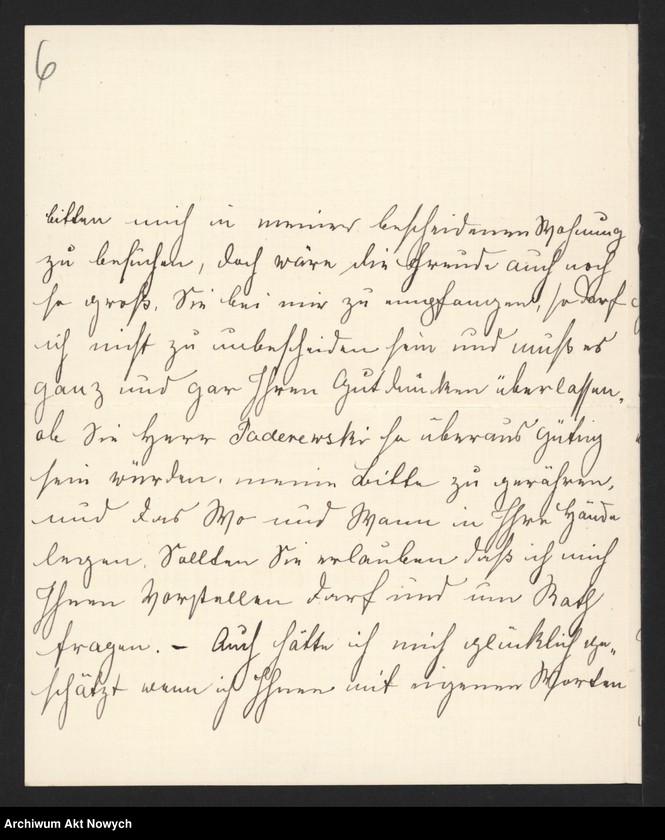 6
bitten mich in meiner bescheidenen Wohnung
zu besuchen, doch wäre die Freude auch noch
so groß, Sie bei mir zu empfangen, so darf
ich nicht zu unbescheiden sein und muß es
ganz und gar Ihren Gutdünken überlassen,
ob Sie Herr Paderewski so überaus gütig
sein würden, meine Bitte zu gewähren,
und das Wo und Wann in Ihre Hände
legen. Sollten Sie erlauben daß ich mich
Ihnen Vorstellen darf und um Rath
fragen. – Auch hätte ich mich glücklich ge„
schätzt wenn ich Ihnen mit eigenen Worten
Archiwum Akt Nowych